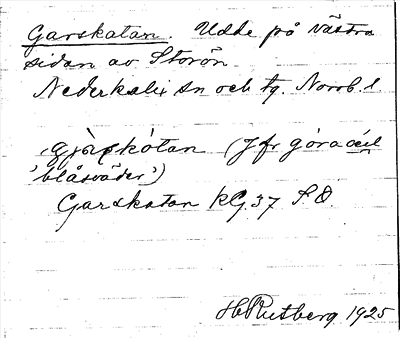 Garskatan. Udde på västra
sidan av Storön
Nederkalix sn och tg. Norrb. l.
(Jfr góra
'blåsväder')
Garskatan kG. 37 S.O.
H Rutberg 1925